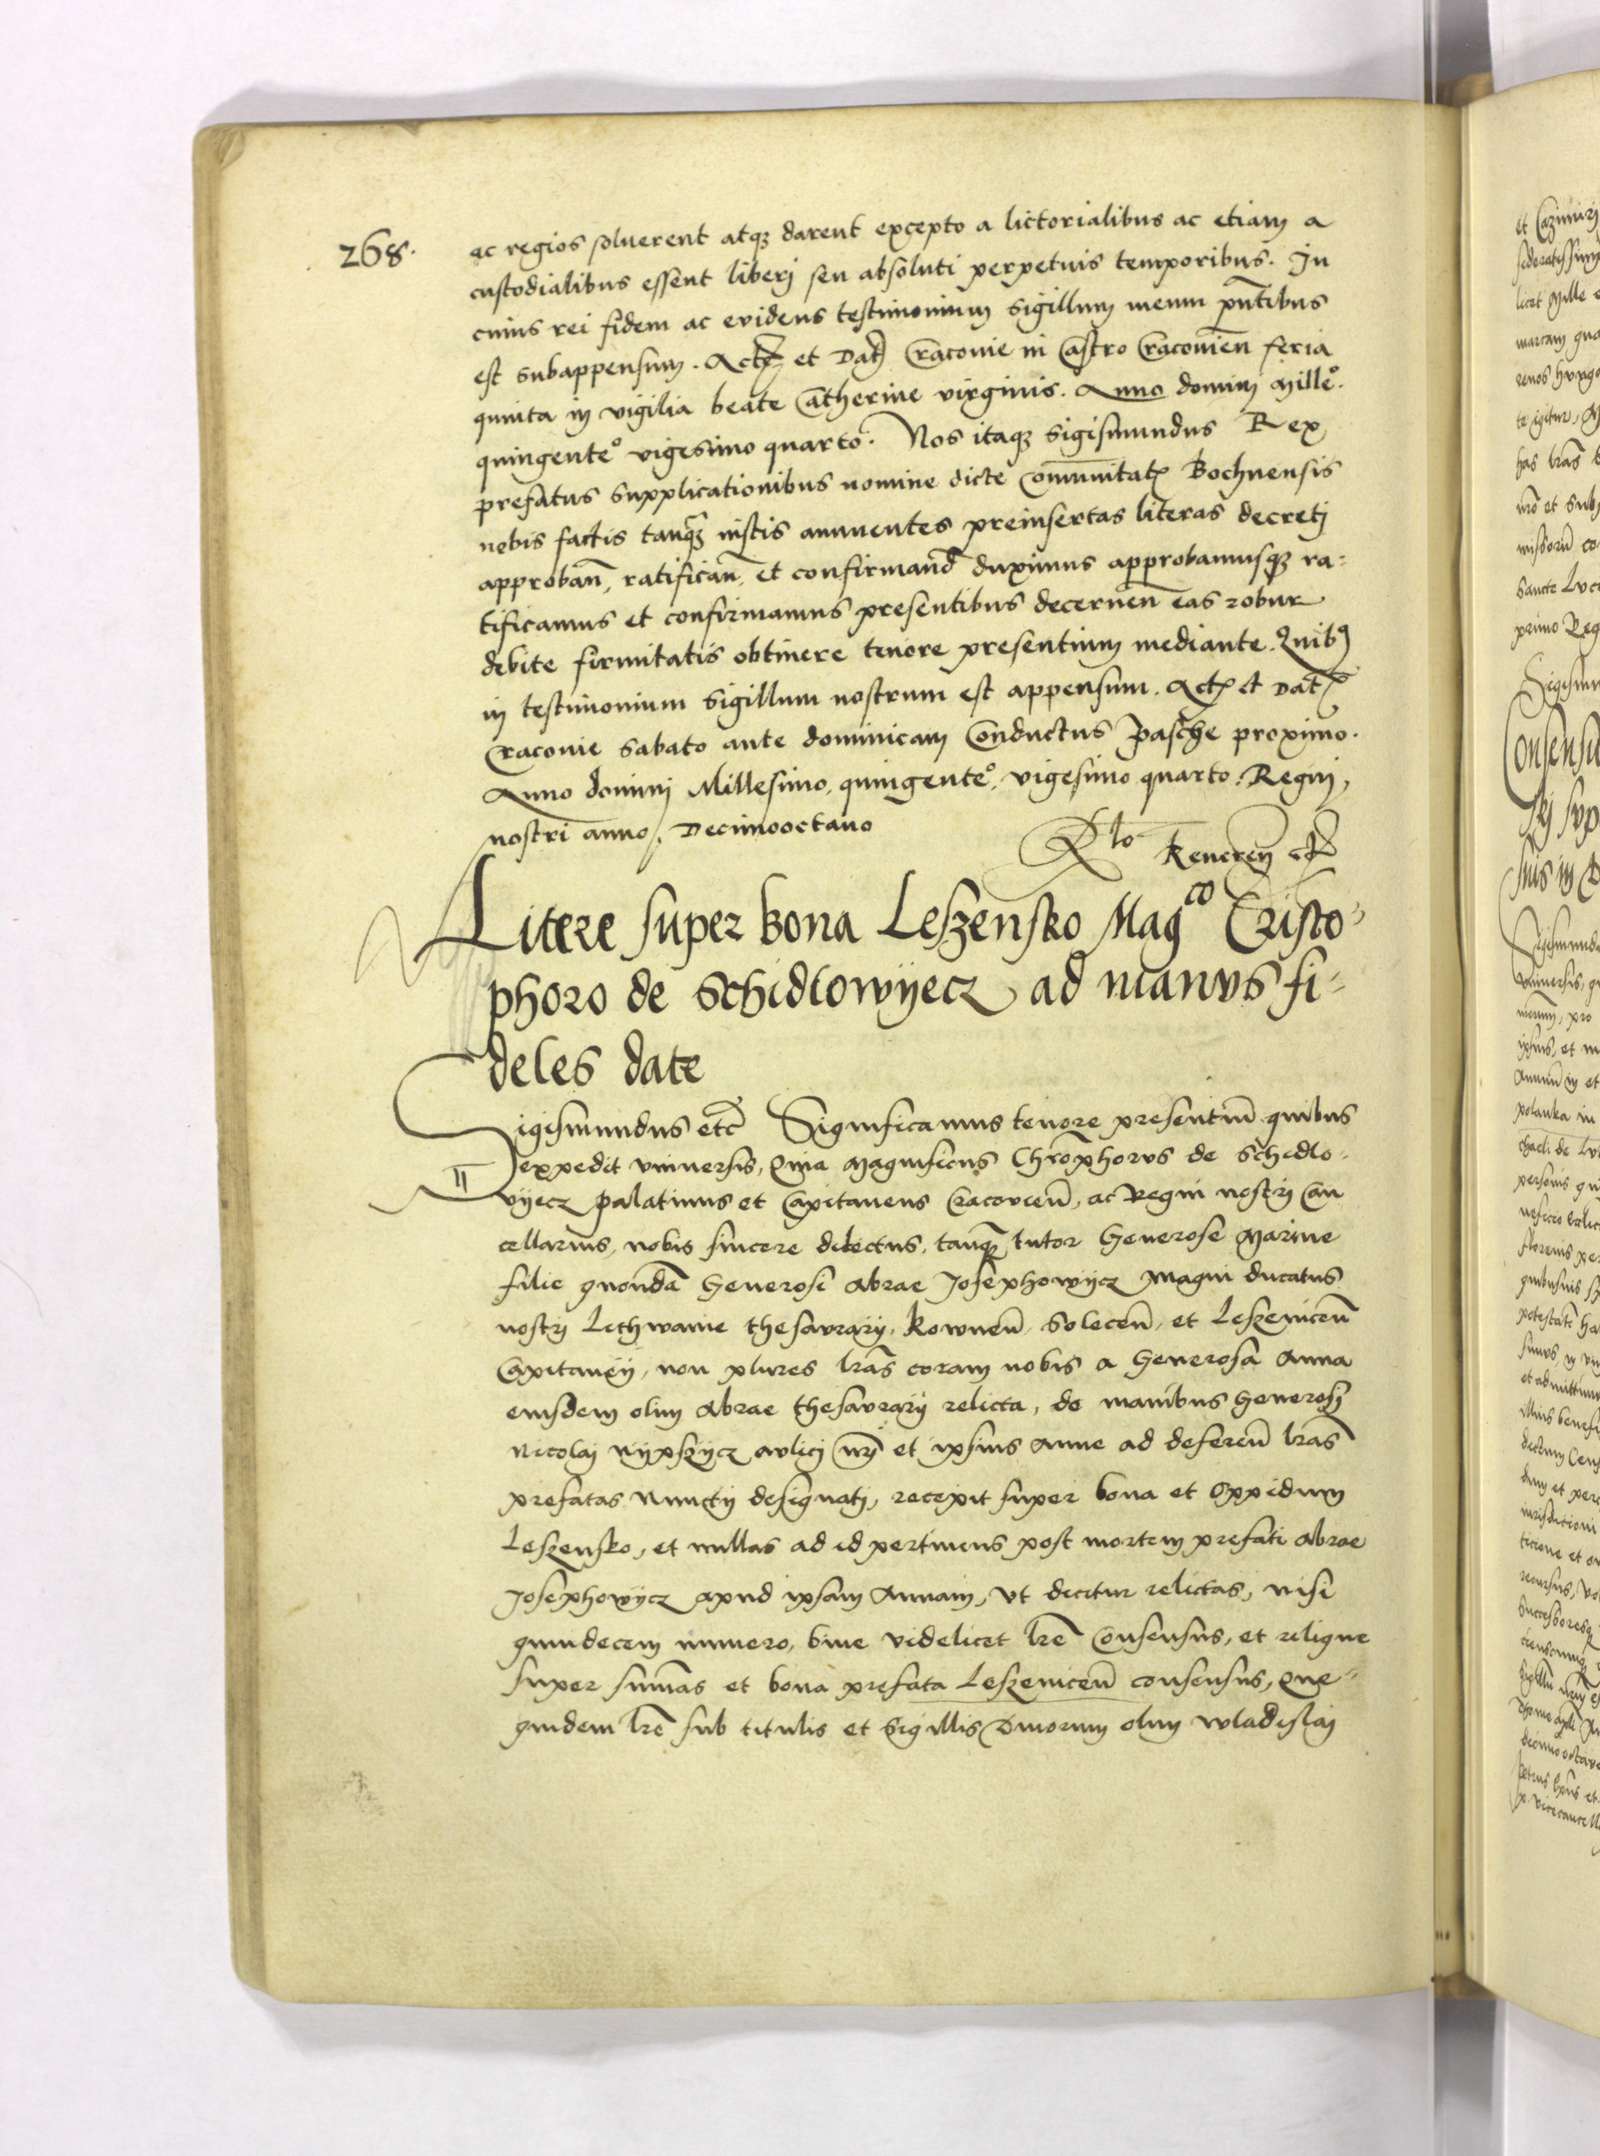 268.
ac regios soluerent atq3 darent excepto a lictorialibus ac etiam a
custodialibus essent liberj seu absoluti perpetuis temporibus. In
cuius rei fidem ac evidens testimonium sigillum meum pñtibus
est subappensum. Act et Dat Cracovie in Castro Cracovieñ feria
quinta in vigilia beate Catherine virginis. Anno domini Mille°.
quingente° vigesimo quarto. Nos itaq3 Sigismundus Rex
prefatus supplicationibus nomine dicte Comunitat Bochnensis
nobis factis tanq3 iustis annuentes preinsertas literas decretj
approbañ, ratificañ, et confirmand duximus approbamusq3 ra-
tificamus et confirmamus presentibus decerneñ eas robur
debite firmitatis obtinere tenore presentium mediante. Quib9
in testimonium Sigillum nostrum est appensum. Act et Dat
Cracovie Sabato ante dominicam Conductus Pasche proximo.
Anno domini Millesimo, quingente°, vigesimo quarto. Regni,
nostri anno, Decimooctavo
Rlo
Litere super bona Leszensko Magco Cristo-
phoro de Schidlowyecz ad manus fi-
deles date
Sigismundus etc Significamus tenore presentiũ quibus
expedit vniuersis, Quia Magnificus Christophorus de Schidlo-
vyecz palatinus et Capitaneus Cracovieñ, ac Regni nostrj Can
cellarius, nobis sincere dilectus, tanq3 tutor Generose Marine
filie quondã Generosi Abrae Josephowycz Magni ducatus
nostrj Lethwanie thesaurarij, Kowneñ, Soleceñ, et Leszeniceñ
Capitanej, non plures lras coram nobis a Generosa Anna
eiusdem olim Abrae thesaurarij relicta, de manibus Generosj
Nicolaj Nypszycz aulicj nrj et ipsius Anne ad defereñ lras
prefatas Nunctij designatj, recepit super bona et Oppidum
Leszensko, et nullas ad id pertinens post mortem prefati Abrae
Josephowycz apud ipsam Annam, vt dicitur relictas, nisi
quindecem numero, bine videlicet lre Consensus, et relique
super sumãs et bona prefata Leszeniceñ consensus, Que-
quidem lre sub titulis et Sigillis Duorum olim Wladislaj